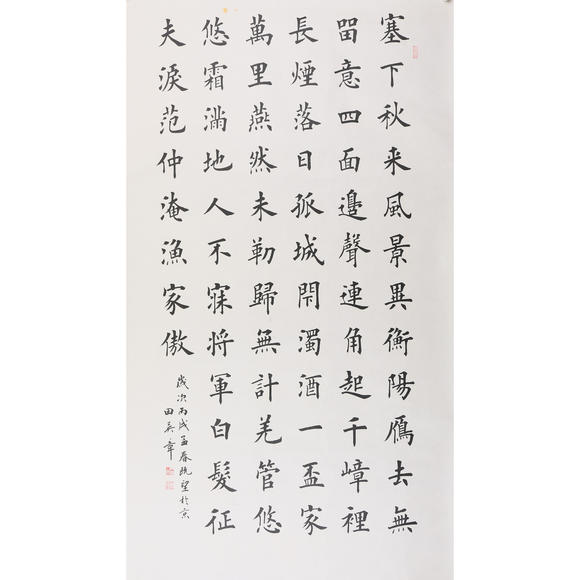 塞下秋来風景異衡陽鴈去無
留意四面邊聲連角起千嶂裡
長煙落日孤城閇濁酒一盃家
萬里燕然未勒歸無計羌管悠
悠霜滿地人不寐將軍白髮征
夫淚范仲淹漁家傲
歲次丙戌孟春既望於京
田英章